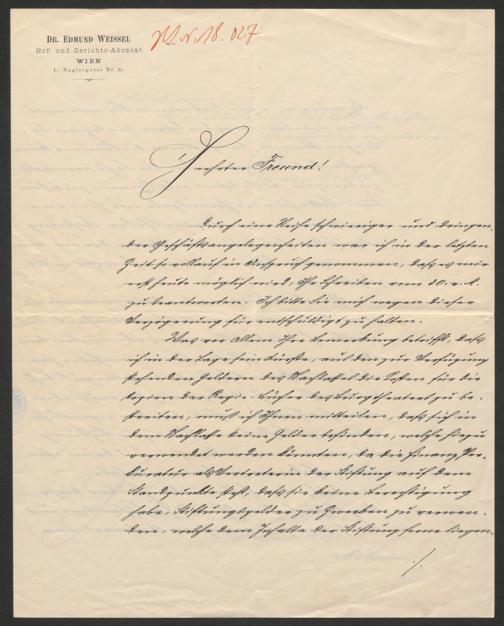 DR. EDMUND WEISSEL
Hof- und Gerichts-Advocat
WIEN
I., Naglergasse Nr.
N. 18.027
Freund!
durch eine Reihe schwieriger und dringen-
der Geschäftsangelegenheiten war ich in der letzten
Zeit so vollauf in Anspruch genommen, daß es mir
erst heute möglich wird, Ihr Schreiben vom 20. v. M.
zu beantworten. Ich bitte Sie mich wegen dieser
Verzögerung für entschuldigt zu halten.
Was vor allem Ihre Bemerkung betrifft, daß
ich in der Lage sein dürfte, aus den zur Verfügung
stehenden Geldern des Nachlasses die Kosten für die
der Regie-Bücher des Burgtheaters zu be-
streiten, muß ich Ihnen mitteilen, daß sich in
dem Nachlasse keine Gelder befinden, welche hiezu
verwendet werden könnten, da die Finanz-Pro-
kuratur als Vertreterin der Stiftung auf dem
Standpunkte steht, daß sie keine Berechtigung
habe, Stiftungsgelder zu Zwecken zu verwen-
den, welche dem Inhalte der Stiftung ferne liegen.
./.